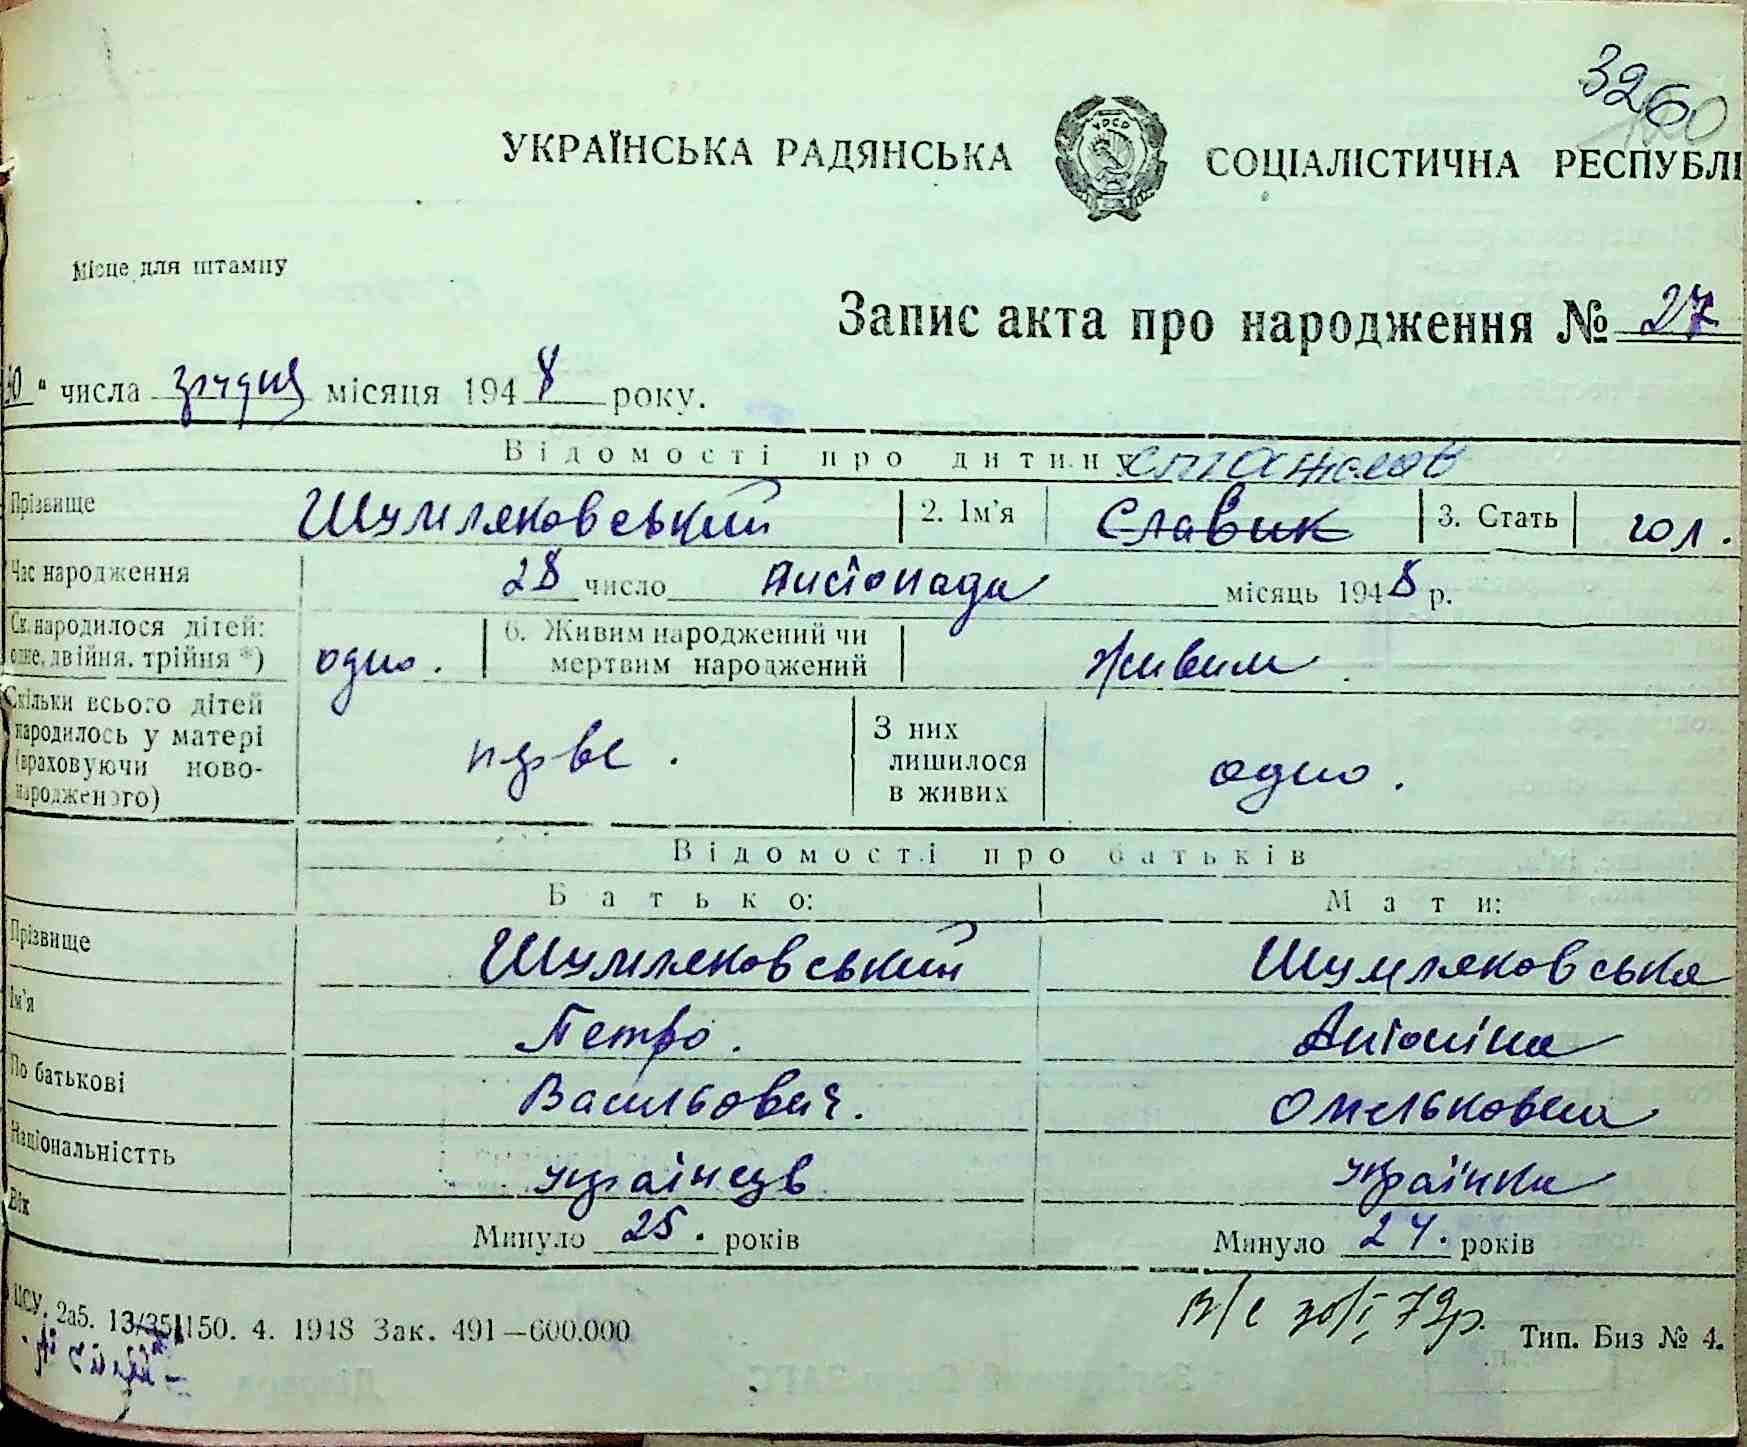 3260
УКРАЇНСЬКА РАДЯНСЬКА СОЦІАЛІСТИЧНА РЕСПУБЛІ
УРСР
Місце для штампу
Запис акта про народження № 27
" числа грудня місяця 1948 року.
Відомості про дитину
Прізвище Шумляковський 2. Ім'я Славик 3. Стать чол.
Час народження 28 число листопада місяць 1948 р.
Ск. народилося дітей: одно. 6. Живим народжений чи живим
одне, двійня, трійня *) мертвим народжений
Скільки всього дітей народилось у матері (враховуючи новонародженого) перве. З них лишилося в живих одно.
Відомості про батьків
Батько: Мати:
Прізвище Шумляковський Шумляковська
Ім'я Петро. Антоніна
По батькові Васильович. Омельковна
Національністть українець українка
Вік Минуло 25. років Минуло 24. років
в/с 30/І 79р.
ЦСУ. 2аб. 13/35 150. 4. 1948 Зак. 491—600.000 Тип. Биз № 4.